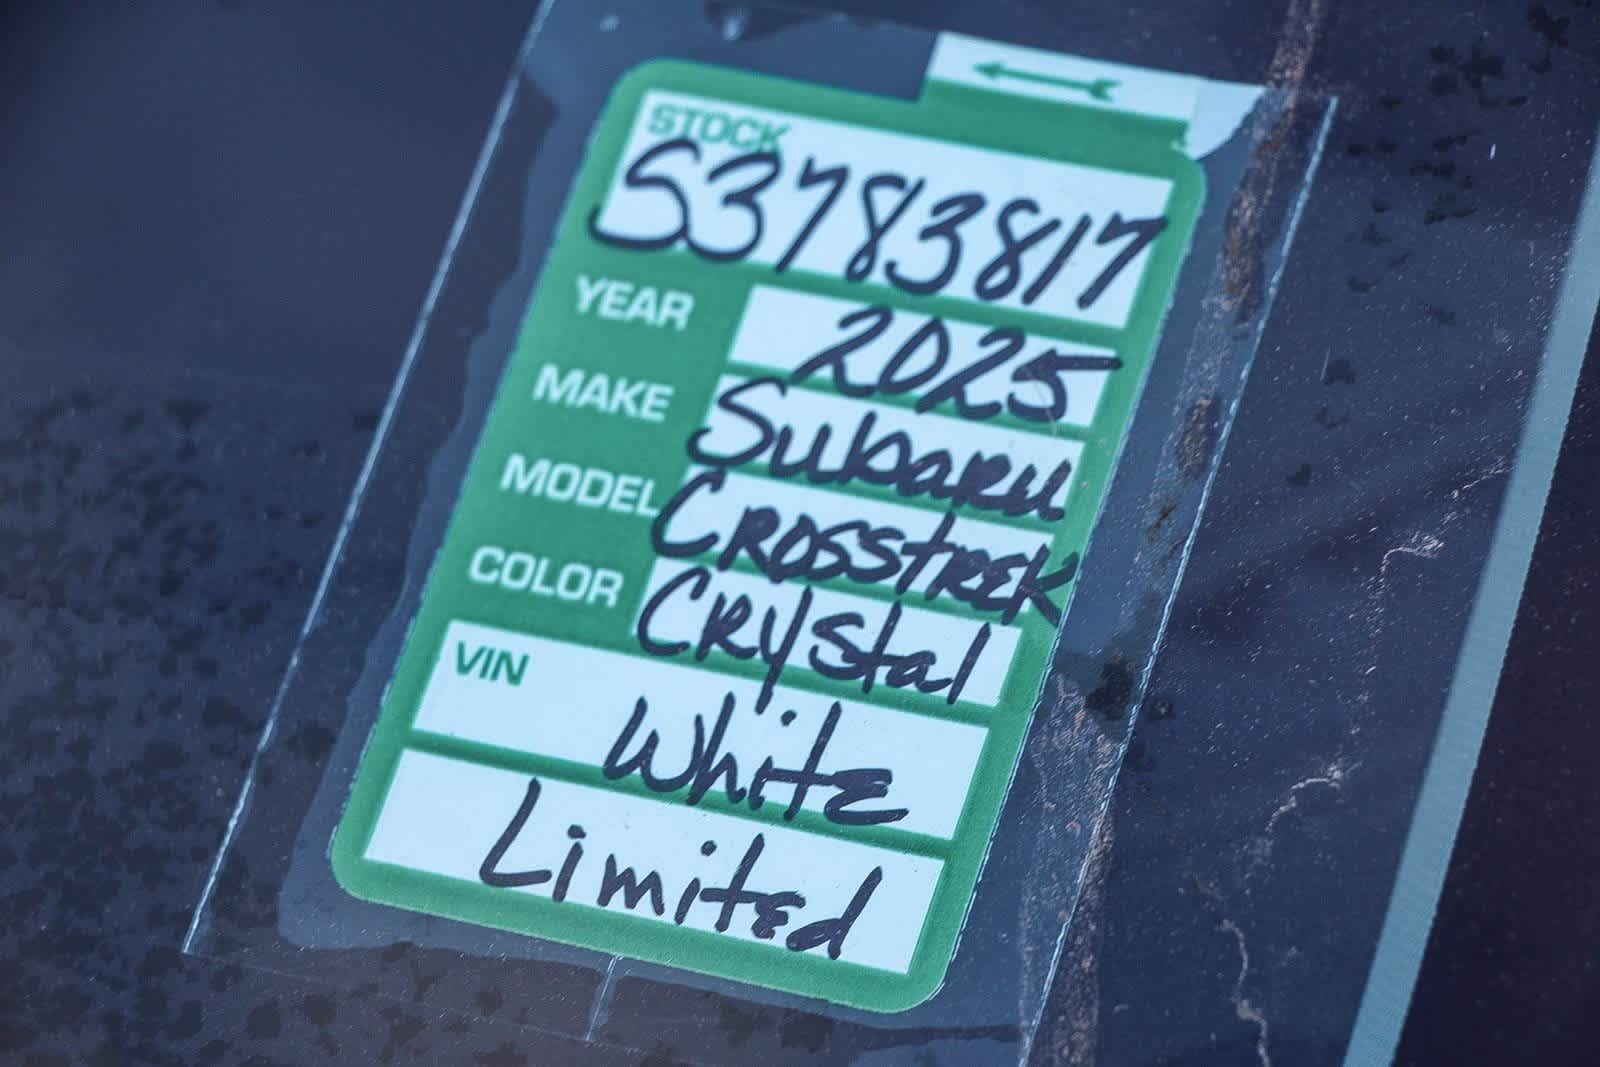 STOCK
S3783817
YEAR 2025
MAKE Subaru
MODEL Crosstrek
COLOR Crystal
VIN
White
Limited